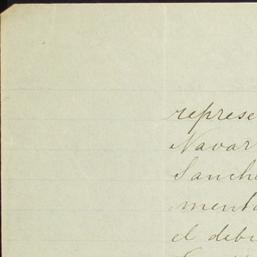 represe
Navar
Sanche
menta
el debi